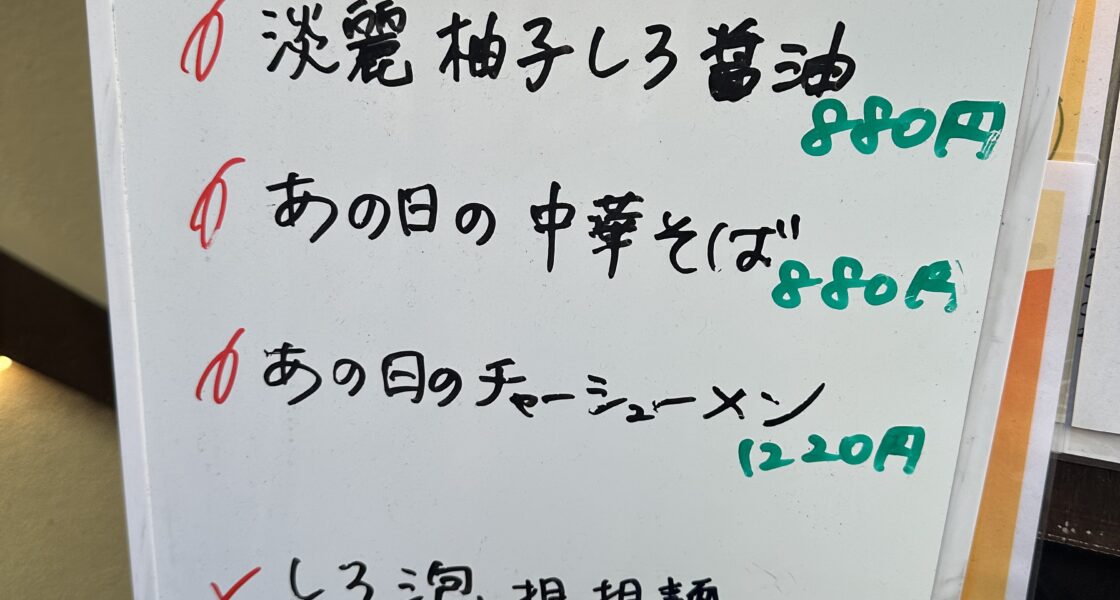 淡麗 柚子しろ醤油
880円
あの日の 中華そば
880円
あの日のチャーシューメン
1220円
しろ泡 担担麺